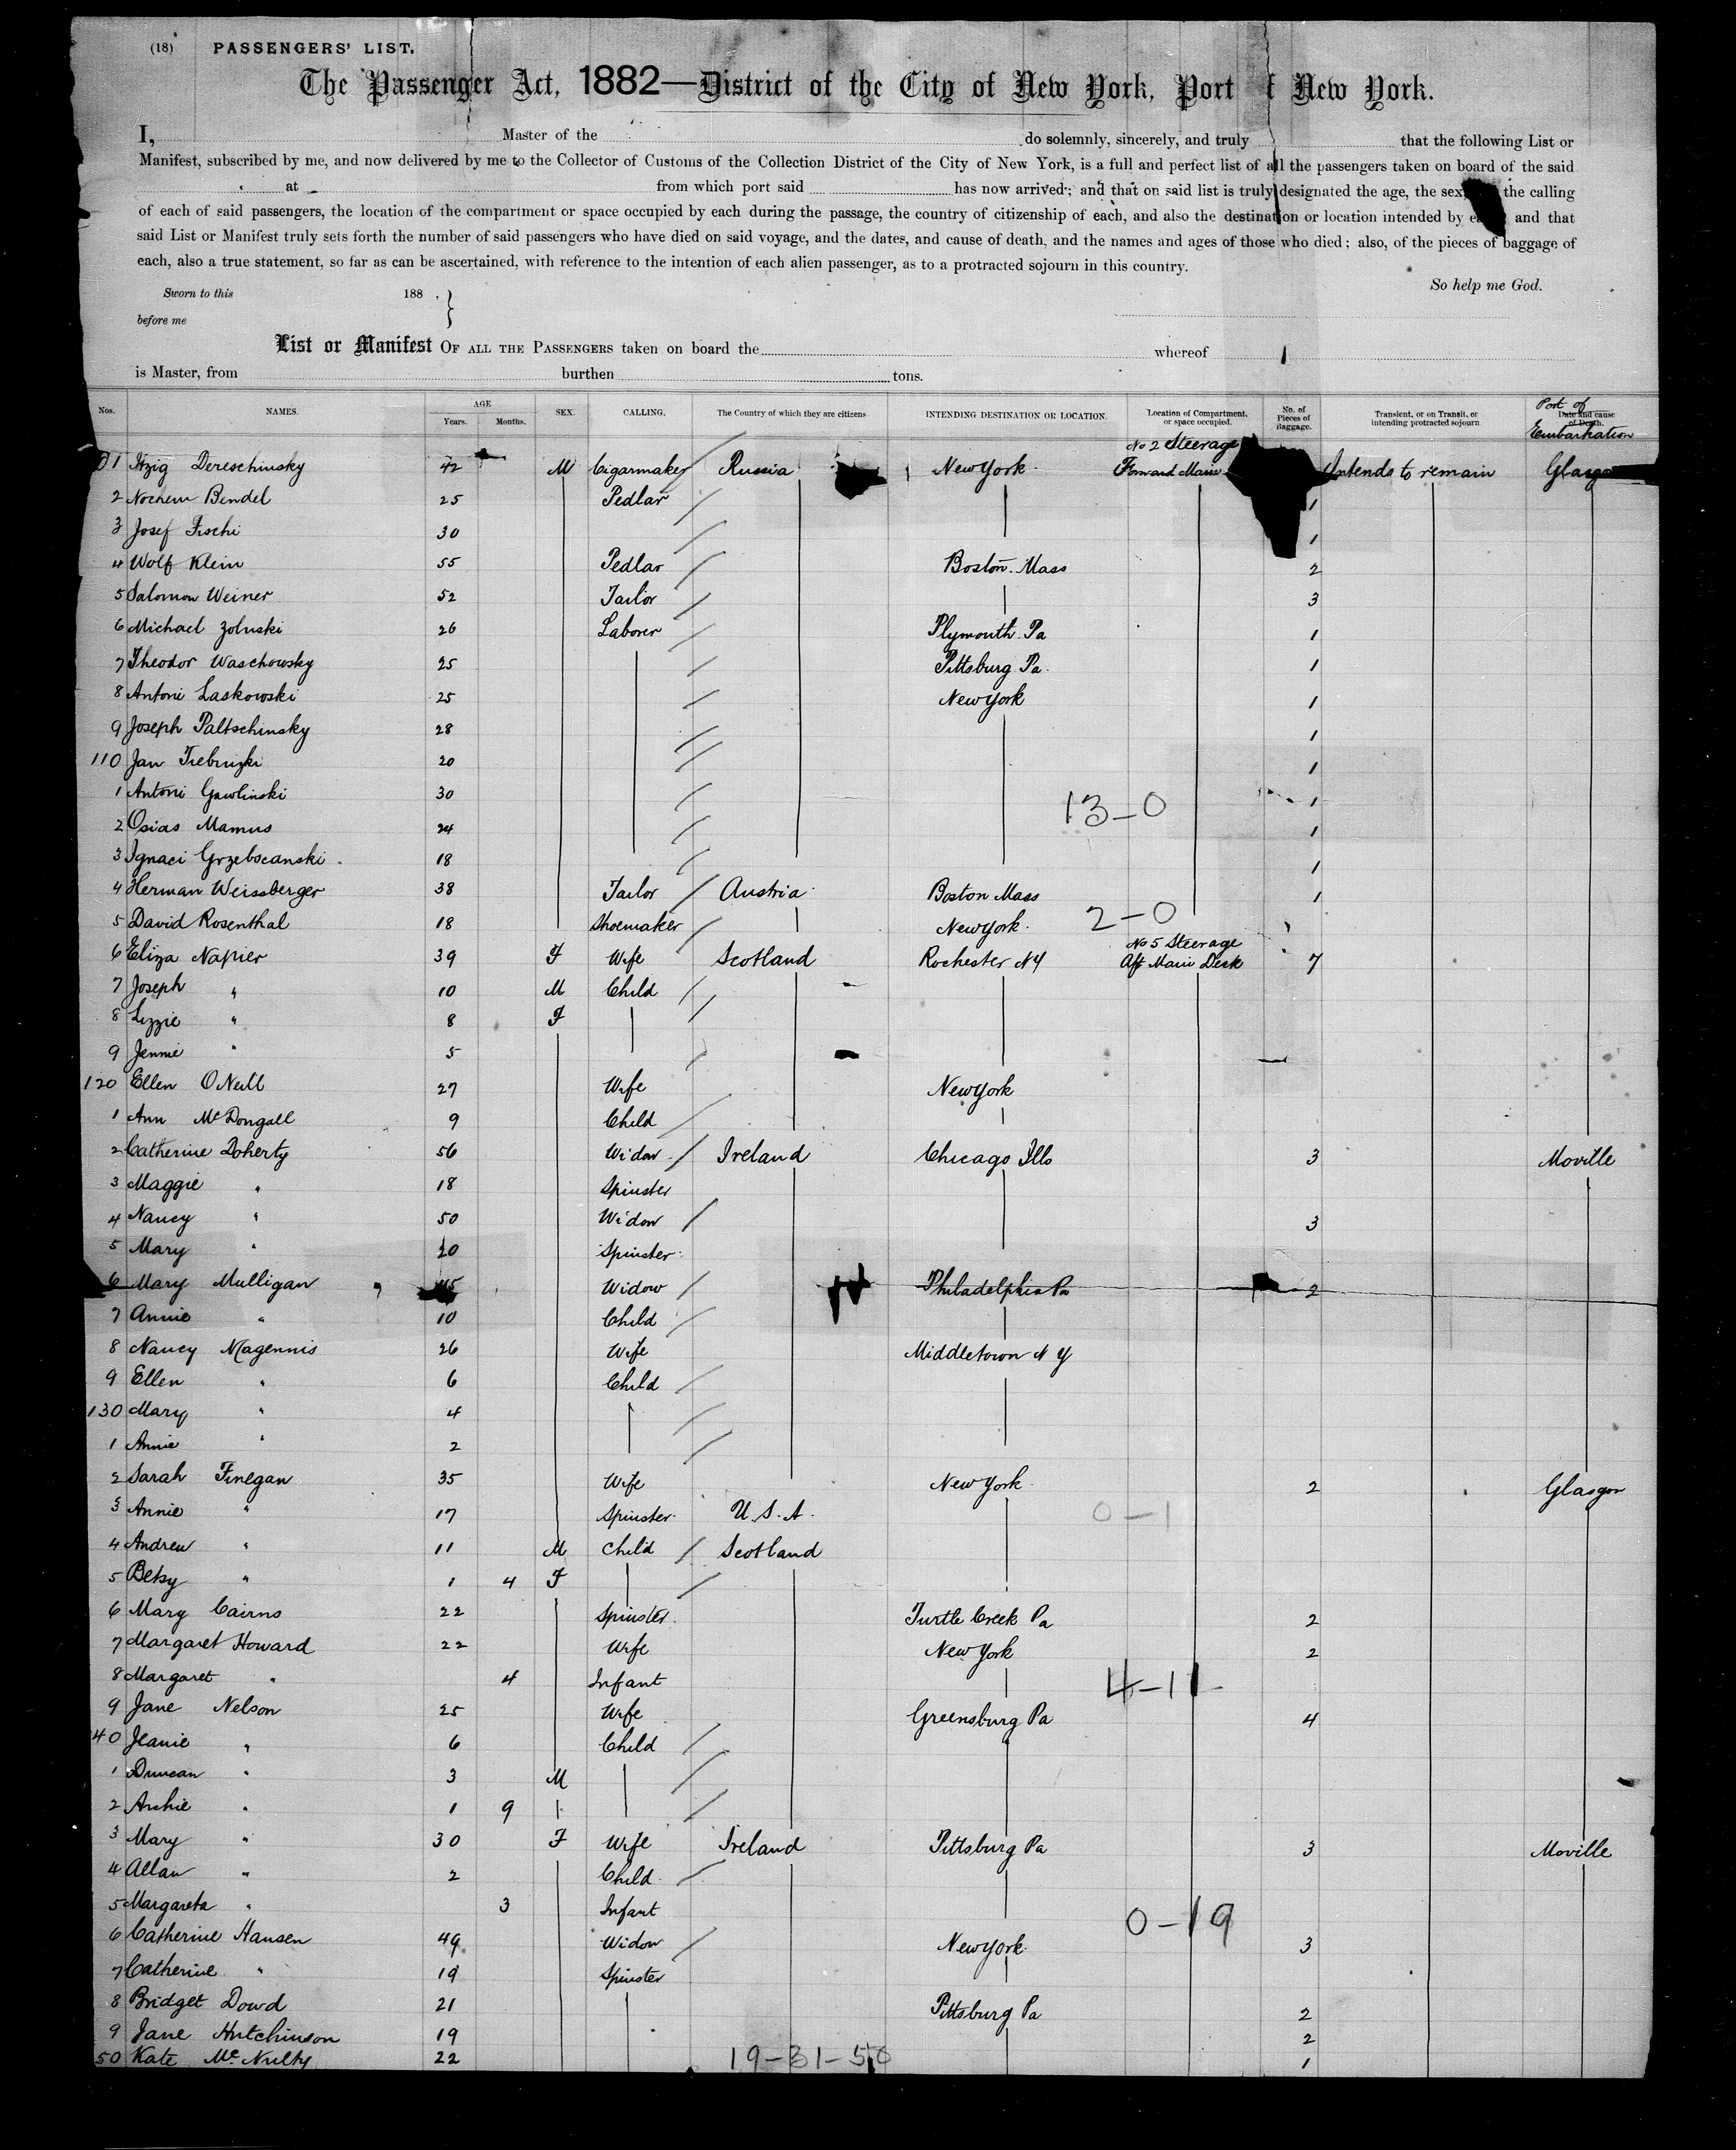 (18) PASSENGERS' LIST.
The Passenger Act, 1882—District of the City of New York, Port f New York.
I, Master of the do solemnly, sincerely, and truly that the following List or
Manifest, subscribed by me, and now delivered by me to the Collector of Customs of the Collection District of the City of New York, is a full and perfect list of all the passengers taken on board of the said
at from which port said has now arrived; and that on said list is truly designated the age, the sex, the calling
of each of said passengers, the location of the compartment or space occupied by each during the passage, the country of citizenship of each, and also the destination or location intended by and that
said List or Manifest truly sets forth the number of said passengers who have died on said voyage, and the dates, and cause of death, and the names and ages of those who died; also, of the pieces of baggage of
each, also a true statement, so far as can be ascertained, with reference to the intention of each alien passenger, as to a protracted sojourn in this country.
So help me God.
Sworn to this 188 .
before me
List or Manifest OF ALL THE PASSENGERS taken on board the whereof
is Master, from burthen tons.
Nos. NAMES. AGE Years. Months. SEX. CALLING. The Country of which they are citizens INTENDING DESTINATION OR LOCATION. Location of Compartment, or space occupied. No. of Pieces of Baggage. Transient, or on Transit, or intending protracted sojourn. Date and cause of Death. Port of Embarkation
No 2 Steerage
01 Itzig Dereschinsky 42 M Cigarmaker Russia New York Forward Main Intends to remain Glasgow
2 Nochem Bendel 25 Pedlar 1
3 Josef Fischi 30 1
4 Wolf Klein 55 Pedlar Boston. Mass 2
5 Salomon Weiner 52 Tailor 3
6 Michael Zoluski 26 Laborer Plymouth. Pa 1
7 Theodor Waschowsky 25 Pittsburg Pa. 1
8 Antoni Laskowski 25 New York 1
9 Joseph Paltschinsky 28 1
110 Jan 20 1
1 Antoni Gawlinski 30 13-0 1
2 Osias Mamus 24 1
3 Ignaci Grzeboscanski 18 1
4 Herman Weissberger 38 Tailor Austria Boston Mass 1
5 David Rosenthal 18 Shoemaker New York. 2-0
No 5 Steerage
6 Eliza Napier 39 F Wife Scotland Rochester NY Aft Main Deck 7
7 Joseph " 10 M Child
8 Lizzie " 8 F
9 Jennie " 5
120 Ellen ONeill 27 Wife New York
1 Ann McDongall 9 Child
2 Catherine Doherty 56 Widow Ireland Chicago Ills 3 Moville
3 Maggie " 18 Spinster
4 Nancy " 50 Widow 3
5 Mary " 20 Spinster
6 Mary Mulligan 45 Widow Philadelphia Pa 2
7 Annie " 10 Child
8 Nancy Magennis 26 Wife Middletown N Y
9 Ellen " 6 Child
130 Mary " 4
1 Annie " 2
2 Sarah Finegan 35 Wife New York 2 Glasgow
3 Annie " 17 Spinster U.S.A. 0-1
4 Andrew " 11 M Child Scotland
5 Betsy " 1 4 F
6 Mary Cairns 22 Spinster Turtle Creek Pa 2
7 Margaret Howard 22 Wife New York 2
8 Margaret " 4 Infant 4-11
9 Jane Nelson 25 Wife Greensburg Pa 4
40 Jeanie " 6 Child
1 Duncan " 3 M
2 Archie " 1 9
3 Mary " 30 F Wife Ireland Pittsburg Pa 3 Moville
4 Allan " 2 Child
5 Margareta " 3 Infant 0-19
6 Catherine Hansen 49 Widow New York 3
7 Catherine " 19 Spinster
8 Bridget Dowd 21 Pittsburg Pa 2
9 Jane Hutchinson 19 2
50 Kate McNulty 22 19-31-50 1